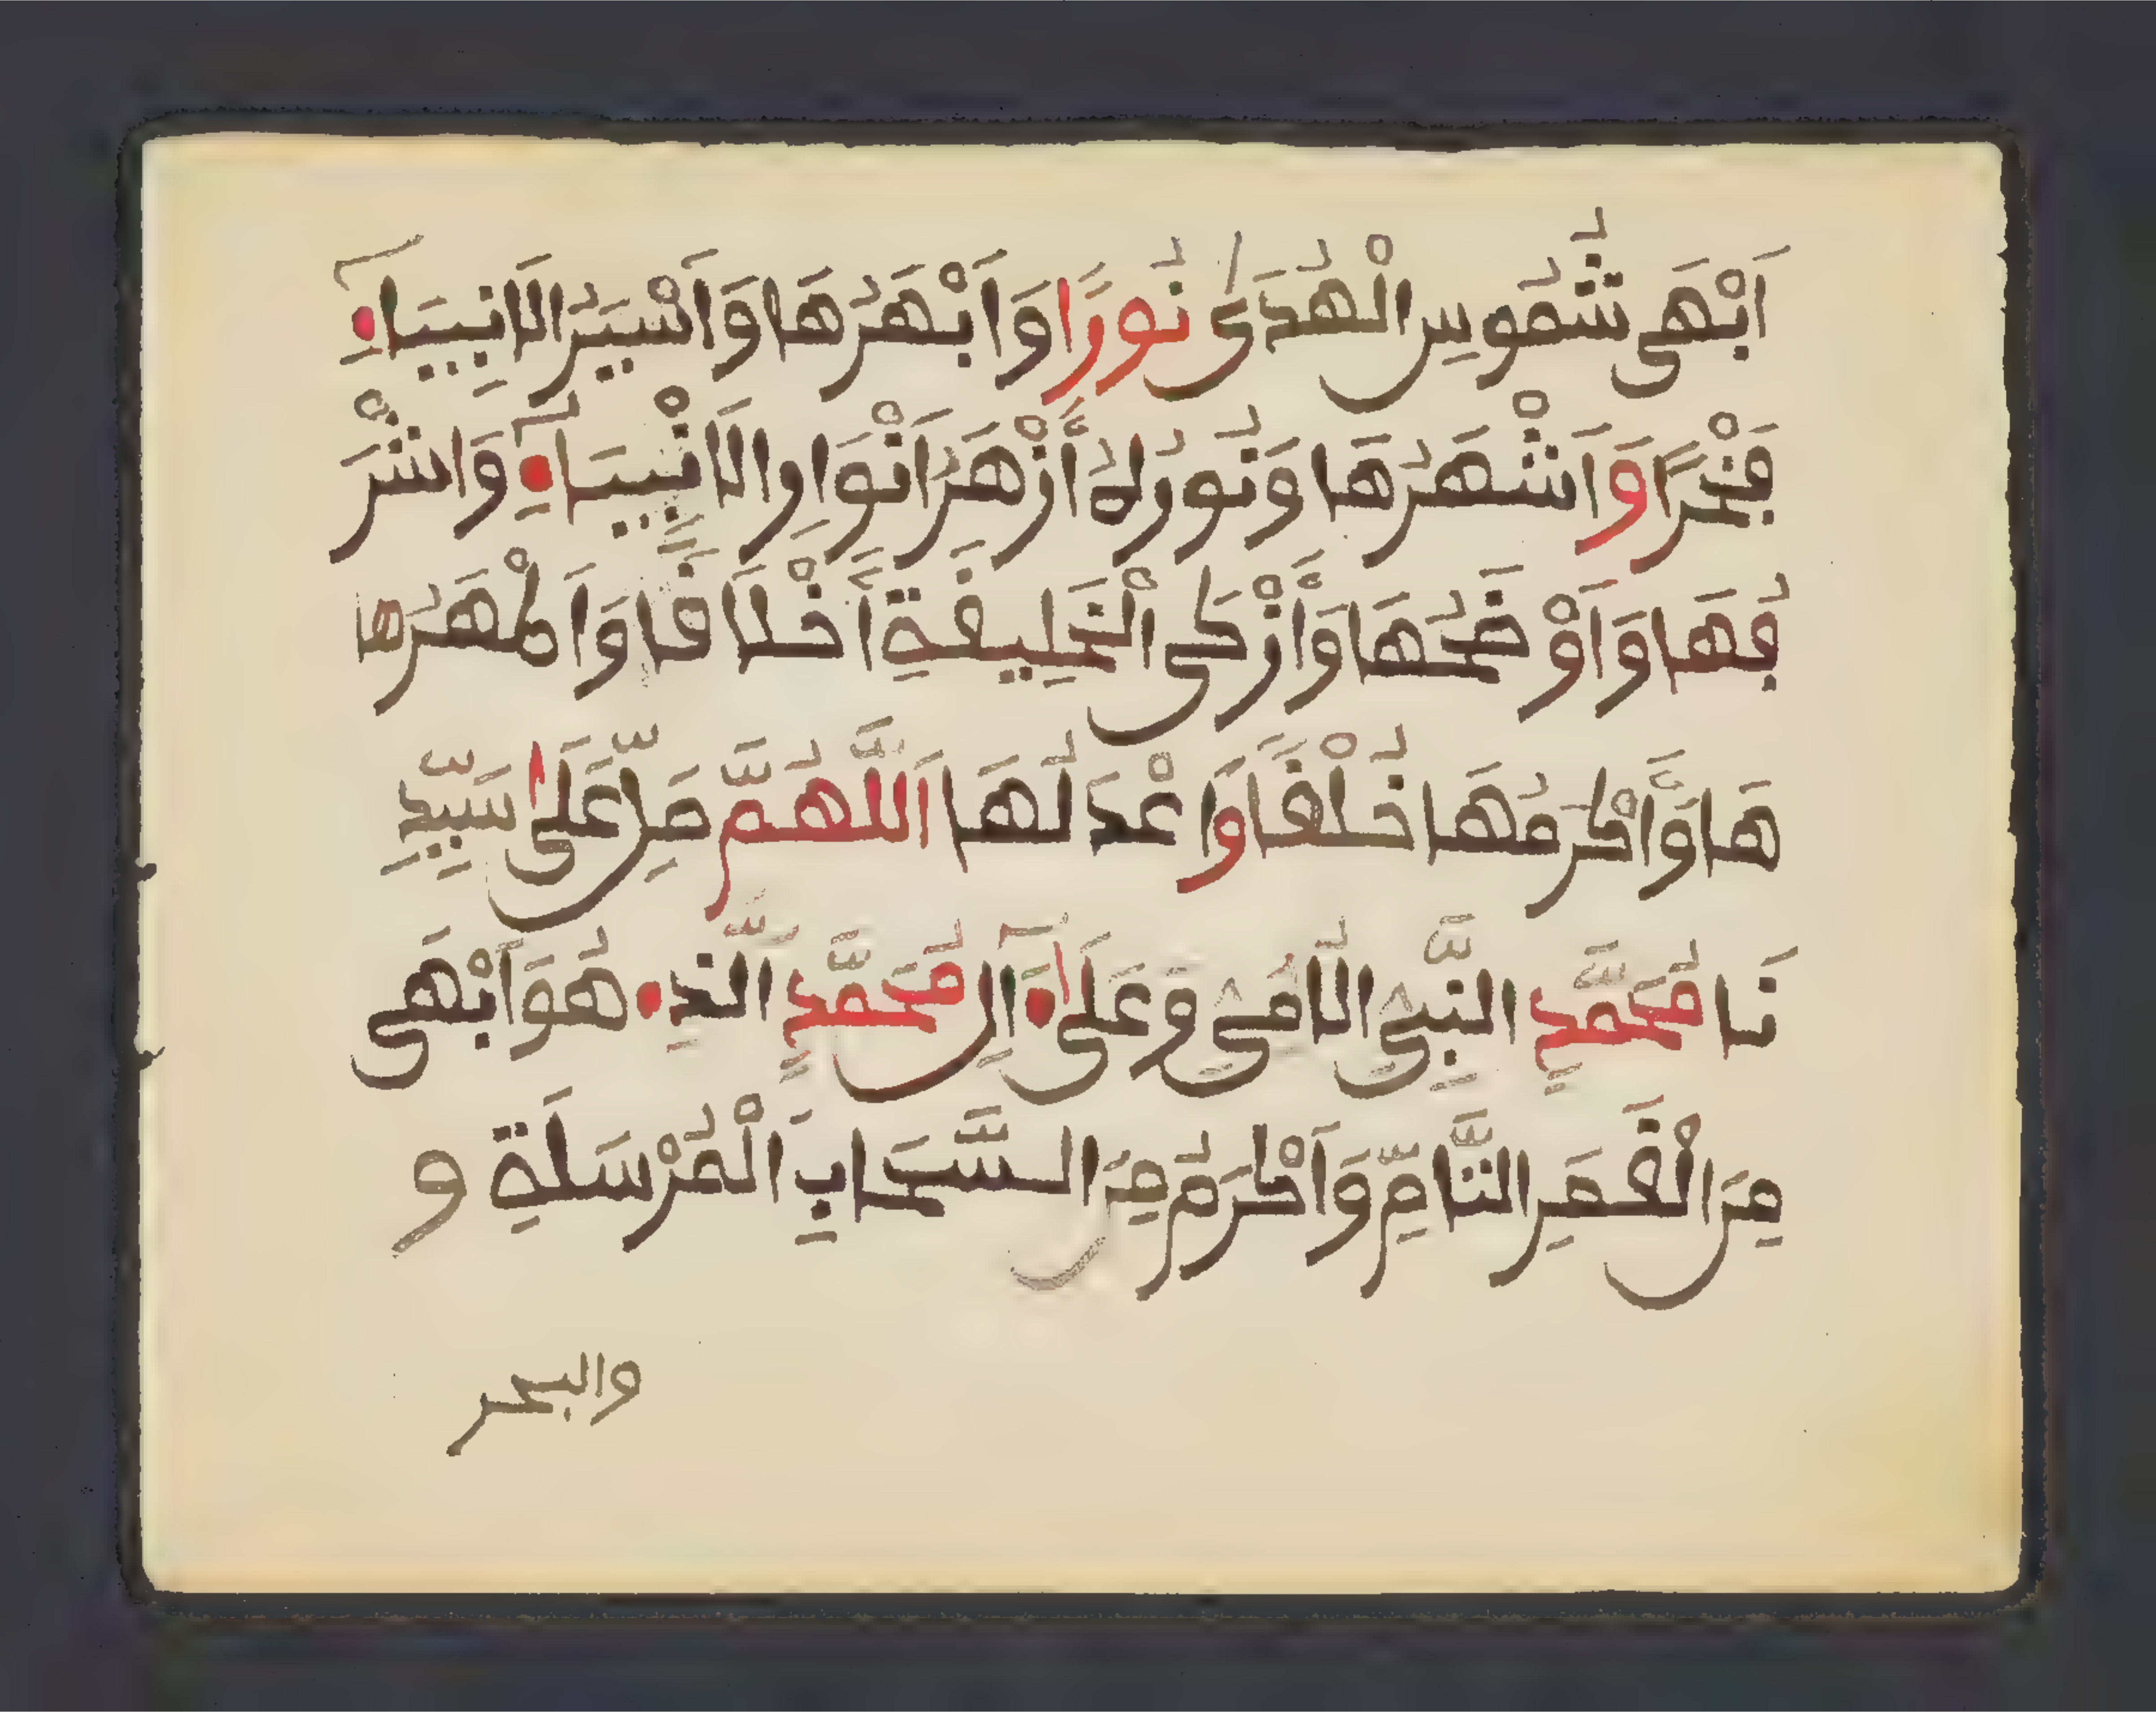 اَبْهَى شُمُوسِ الْهُدَى نُورًا وَاَبْهَرُهَا وَاَسْيَرُ الَانبِيَاءِ
فَخْرًا وَاَشْهَرُهَا وَنُورُهُ أَزْهَرُ اَنْوَارِ الَانْبِيَاءِ وَاشْرَ
فُهَا وَاَوْضَحُهَا وَأَزْكَى الْخَلِيفَةِ أَخْلَافًا وَاَطْهَرُهَا
هَا وَأَكْرَمُهَا خُلْفًا وَاعْدَلُهَا اَللَّهُمَّ صَلِّ عَلَى سَيِّدِ
نَا مُحَمَّدٍ النَّبِيِّ الُامِّي وَعَلَى ءَالِ مُحَمَّدٍ الَّذِے هُوَ اَبْهَى
مِنَ الْقَمَرِ التَّامِّ وَاَكْرَمُ مِنَ السَّحَابِ الْمُرْسَلَةِ و
والبحر